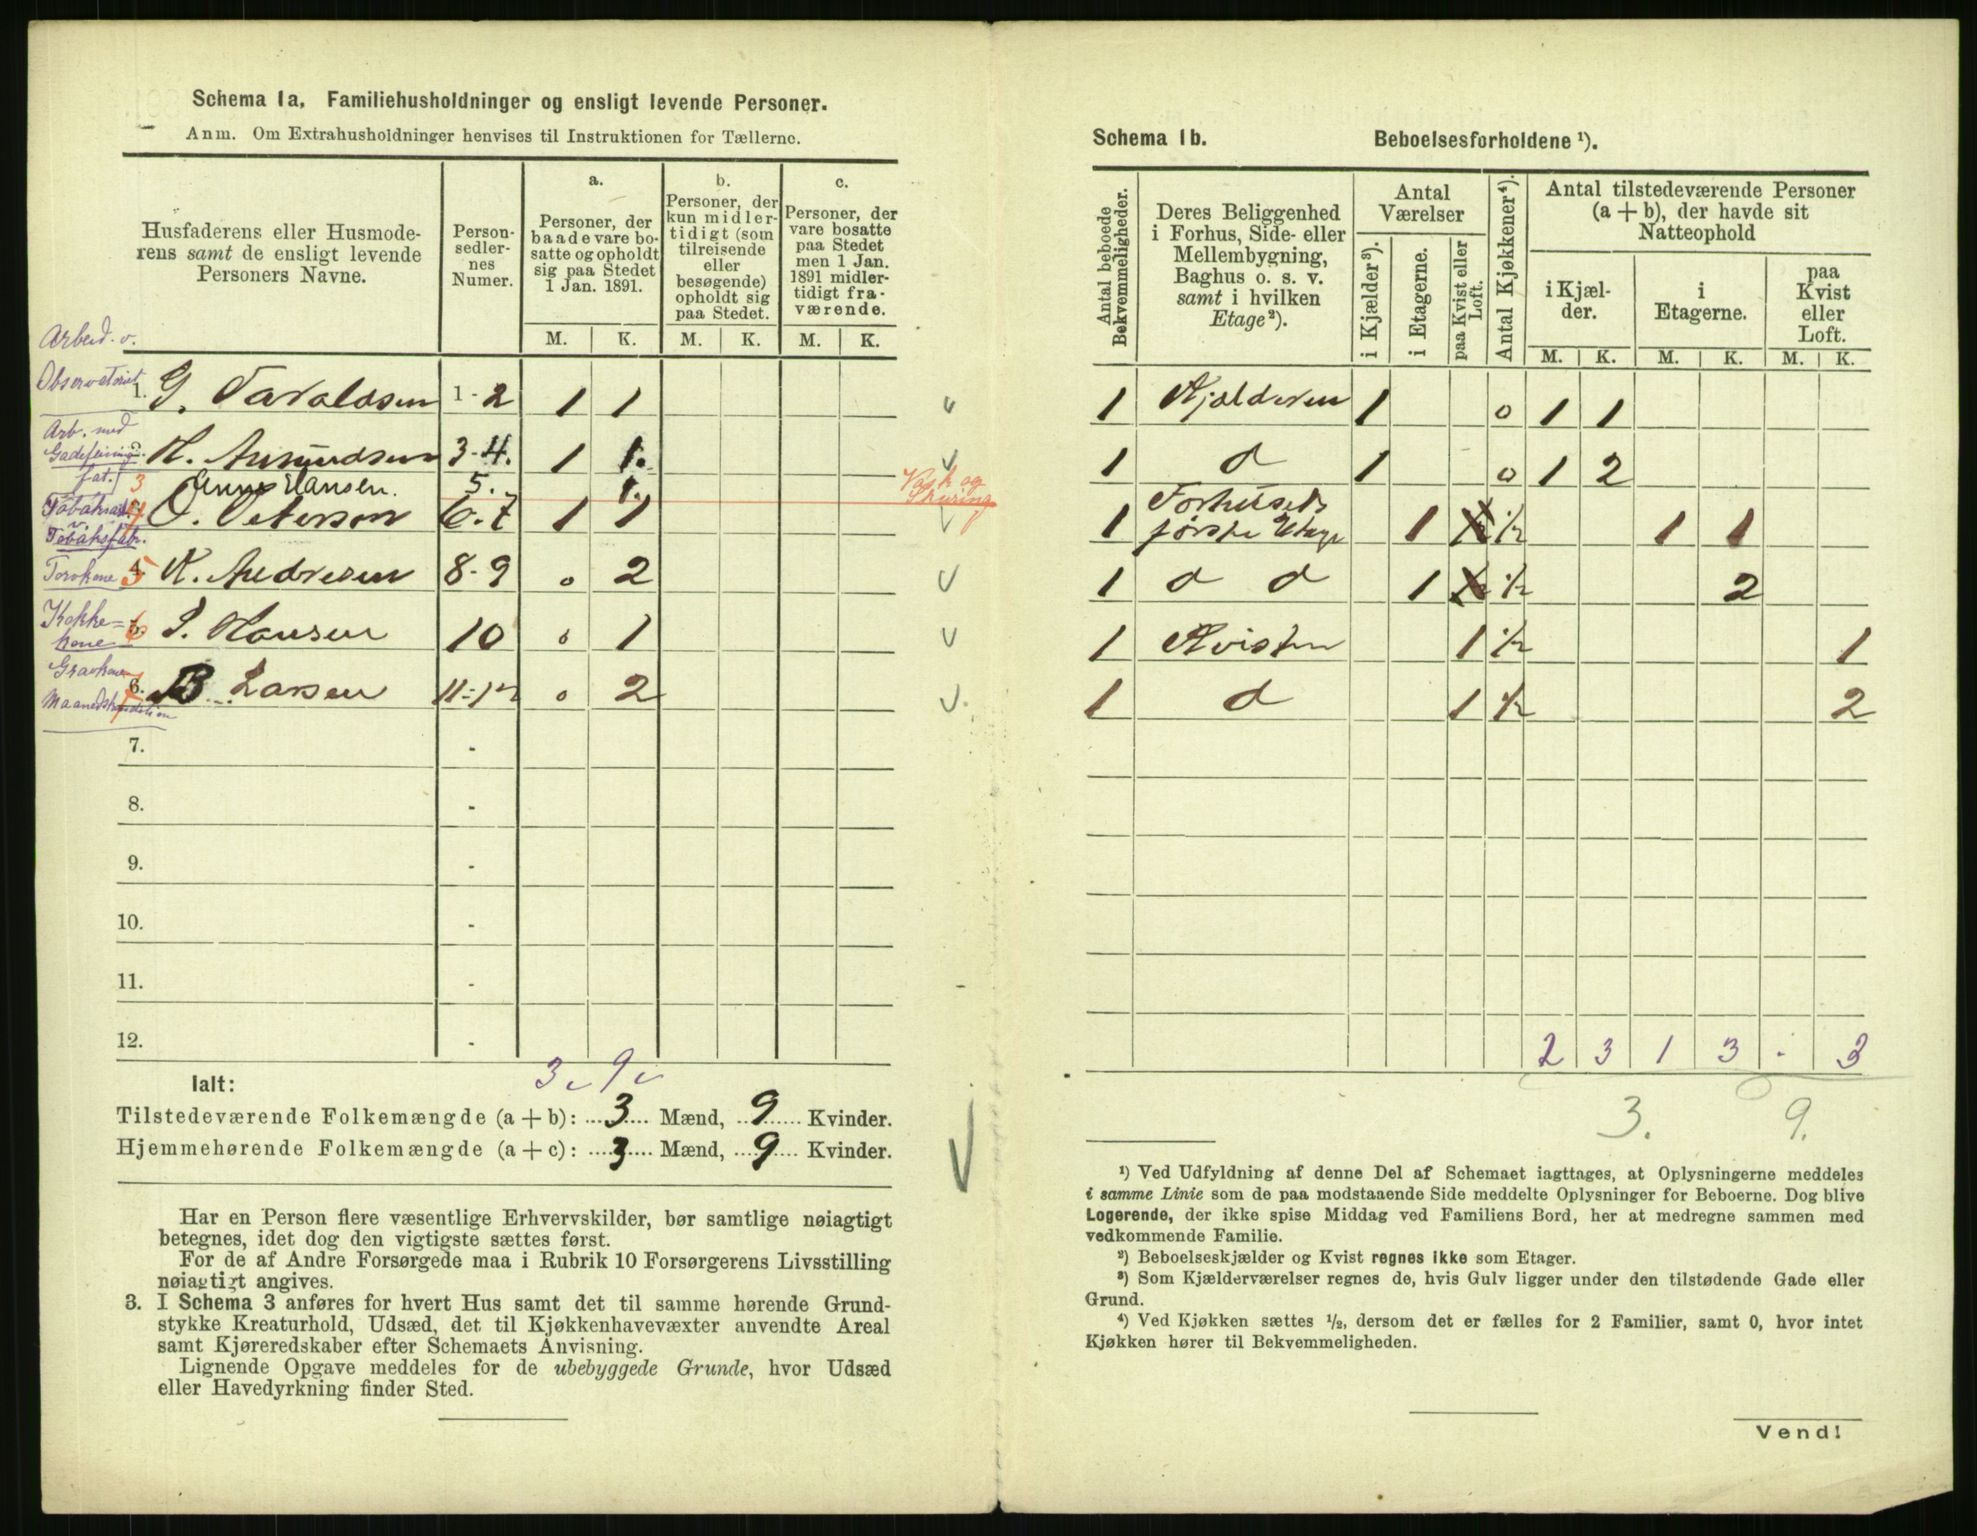 Schema 1a. Familiehusholdninger og ensligt levende Personer.
Anm. Om Extrahusholdninger henvises til Instruktionen for Tællerne.
Husfaderens eller Husmode-
rens samt de ensligt levende
Personers Navne.
Person-
sedler-
nes
Numer.
a.
Personer, der
baade vare bo-
satte og opholdt
sig paa Stedet
1 Jan. 1891.
b.
Personer, der
kun midler-
tidigt (som
tilreisende
eller
besøgende)
opholdt sig
paa Stedet.
c.
Personer, der
vare bosatte
paa Stedet
men 1 Jan.
1891 midler-
tidigt fra-
værende.
M. K. M. K. M. K.
Arbeid. v.
Observatoriet
1. G. Taraldsen 1-2 1 1
Arb. med
Gadefeining
fat.
H. Asmundsen 3-4. 1 1.
3 Anne Hansen. 5. 1. Vask og
Skuring
O. Peterson 6.7 1 1
v.
Tobaksfabr.
Torvkone 5 K. Andresen 8-9 0 2
Kokke=
kone 6 S. Hansen 10 0 1
Gravkone
6. B. Larsen 11-12 0 2
7. -
8. -
9. -
10. -
11. -
12. -
3 9
Ialt:
Tilstedeværende Folkemængde (a + b): 3 Mænd, 9 Kvinder.
Hjemmehørende Folkemængde (a + c): 3 Mænd, 9 Kvinder.
Har en Person flere væsentlige Erhvervskilder, bør samtlige nøiagtigt
betegnes, idet dog den vigtigste sættes først.
For de af Andre Forsørgede maa i Rubrik 10 Forsørgerens Livsstilling
nøiagtigt angives.
3. I Schema 3 anføres for hvert Hus samt det til samme hørende Grund-
stykke Kreaturhold, Udsæd, det til Kjøkkenhavevæxter anvendte Areal
samt Kjøreredskaber efter Schemaets Anvisning.
Lignende Opgave meddeles for de ubebyggede Grunde, hvor Udsæd
eller Havedyrkning finder Sted.
Schema 1b. Beboelsesforholdene ¹).
Antal beboede
Bekvemmeligheder.
Deres Beliggenhed
i Forhus, Side- eller
Mellembygning,
Baghus o. s. v.
samt i hvilken
Etage²).
Antal
Værelser
i Kjælder³).
i Etagerne.
paa Kvist eller
Loft.
Antal Kjøkkener⁴).
Antal tilstedeværende Personer
(a + b), der havde sit
Natteophold
i Kjæl-
der.
i
Etagerne.
paa
Kvist
eller
Loft.
M. K. M. K. M. K.
1 Kjælderen 1 0 1 1
1 d 1 0 1 2
1 Forhusets
første Etage 1 ½ 1 1
1 d d 1 ½ 2
1 Kvisten 1 ½ 1
1 d 1 ½ 2
2 3 1 3 - 3
3. 9.
¹) Ved Udfyldning af denne Del af Schemaet iagttages, at Oplysningerne meddeles
i samme Linie som de paa modstaaende Side meddelte Oplysninger for Beboerne. Dog blive
Logerende, der ikke spise Middag ved Familiens Bord, her at medregne sammen med
vedkommende Familie.
²) Beboelseskjælder og Kvist regnes ikke som Etager.
³) Som Kjælderværelser regnes de, hvis Gulv ligger under den tilstødende Gade eller
Grund.
⁴) Ved Kjøkken sættes ½, dersom det er fælles for 2 Familier, samt 0, hvor intet
Kjøkken hører til Bekvemmeligheden.
Vend!